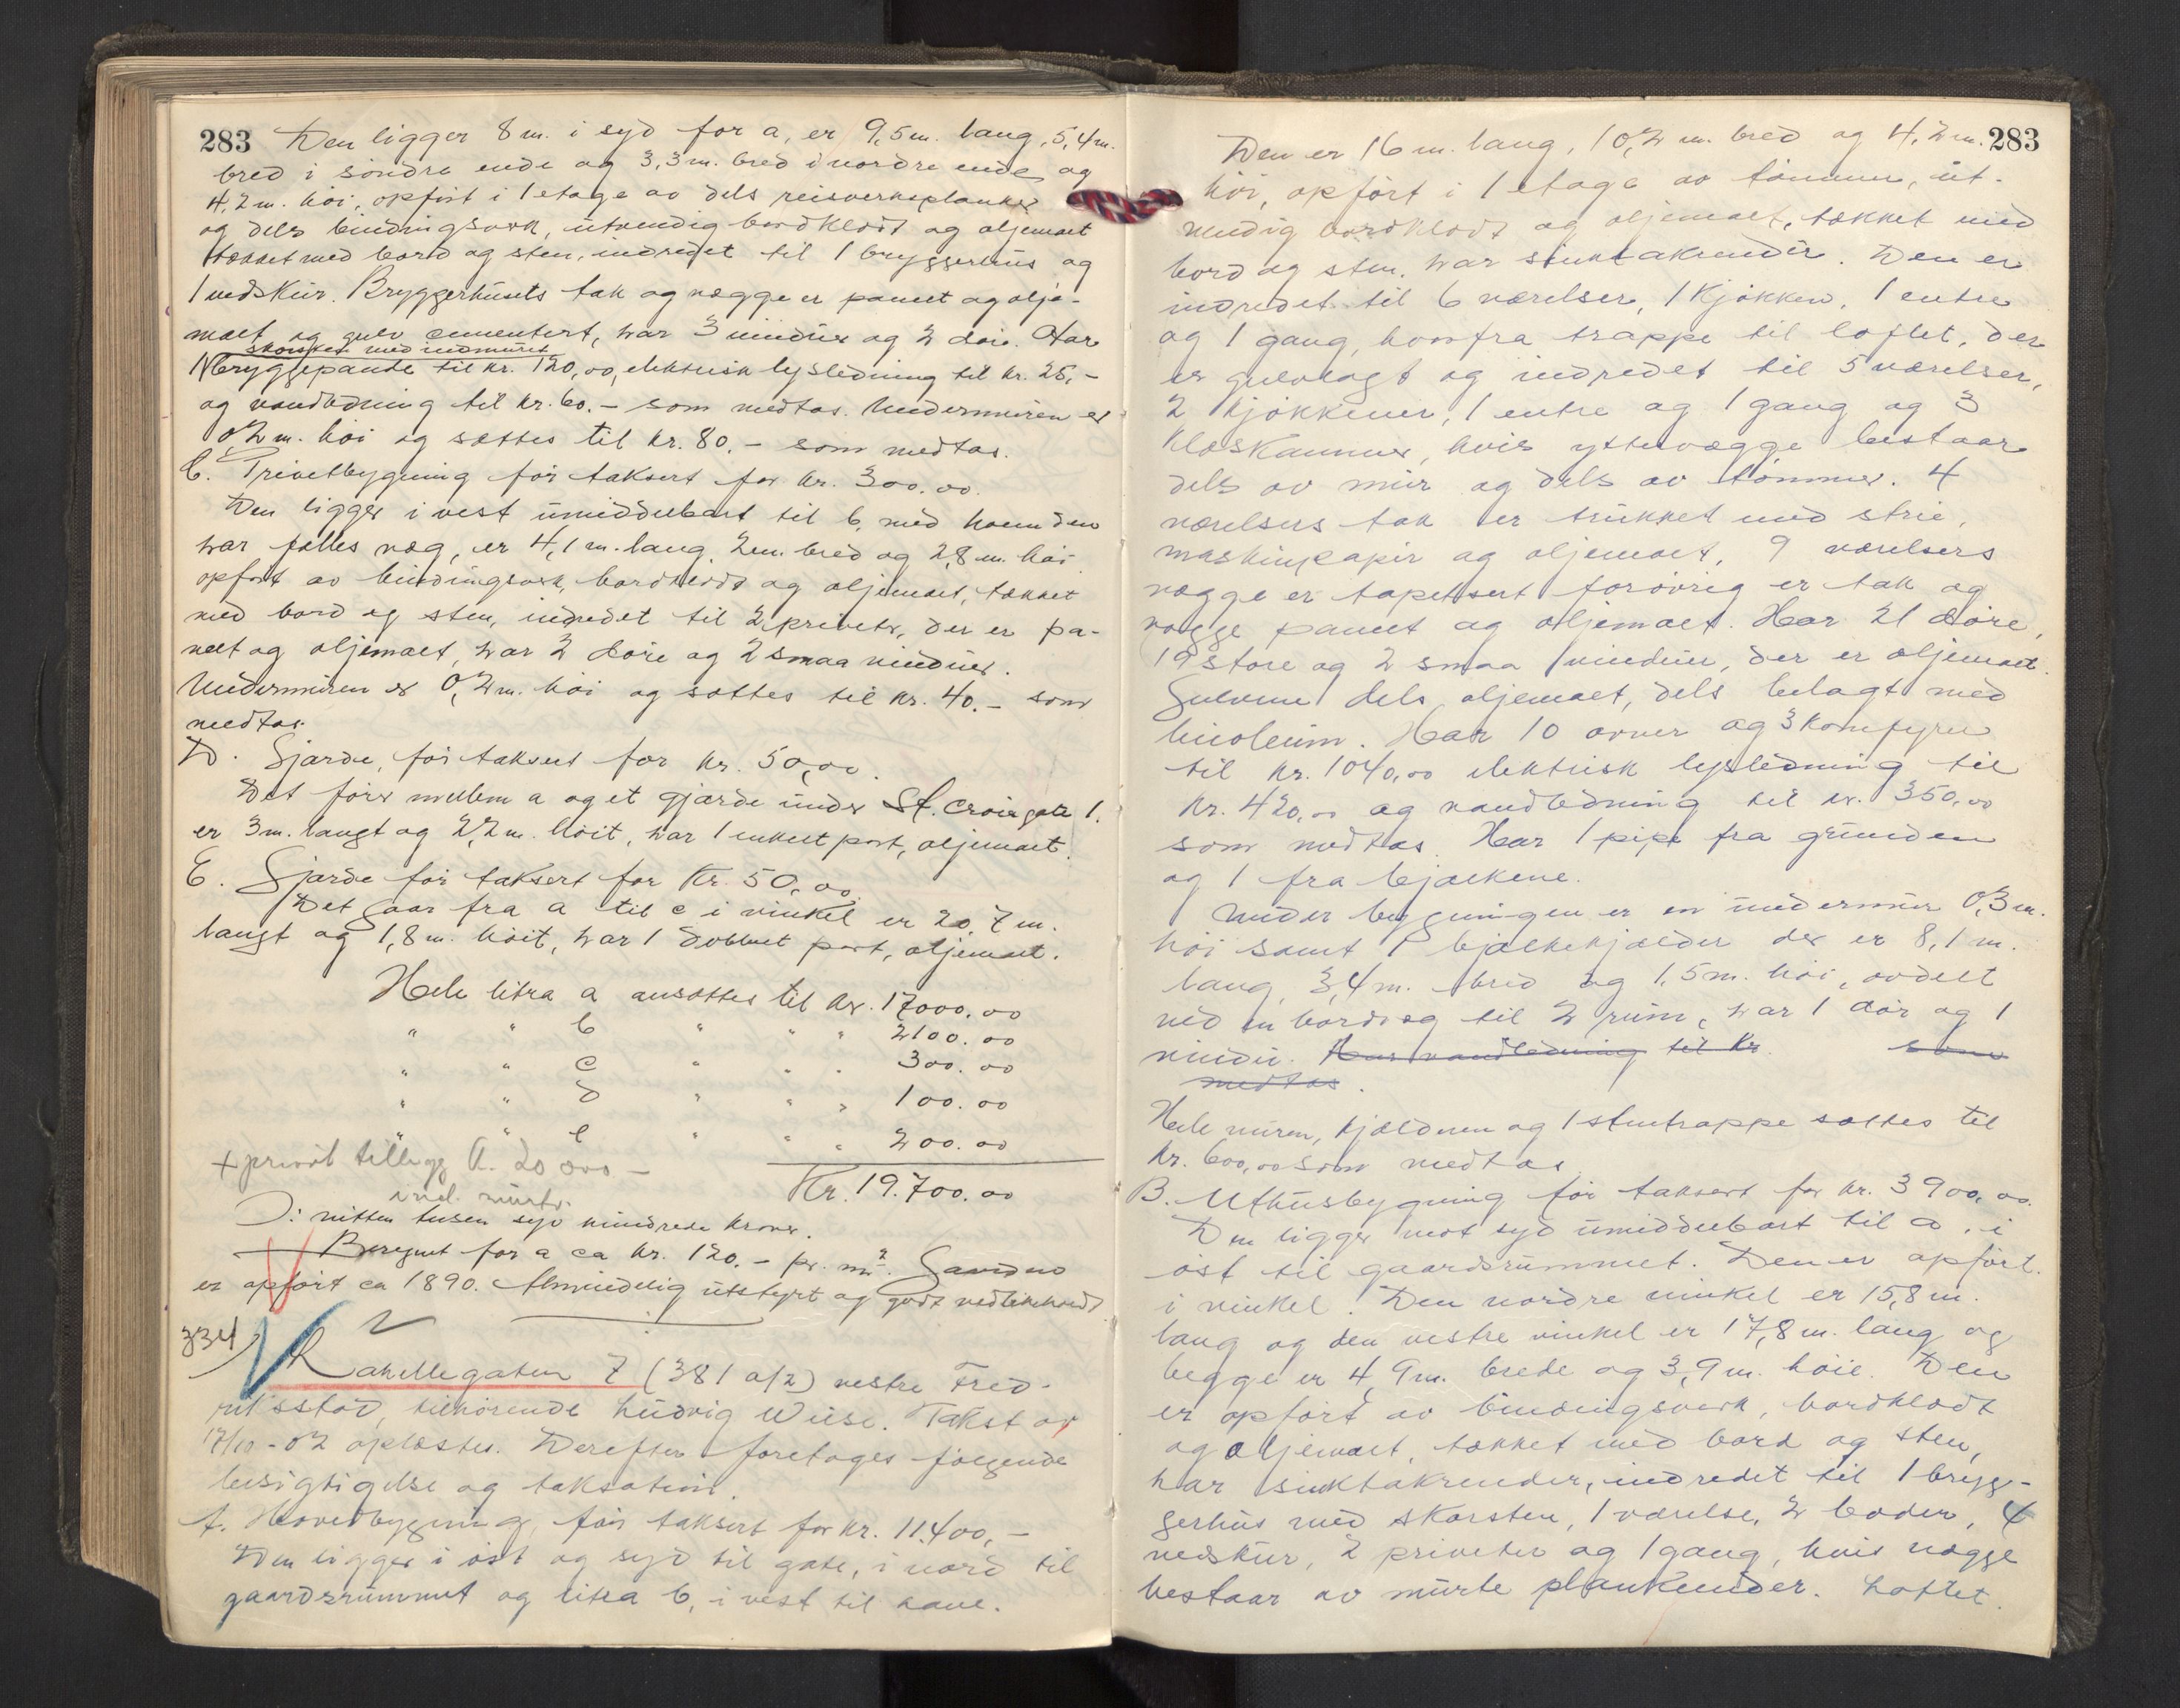 283 Den ligger 8 m. i syd for a, er 9,5 m. lang, 5,4 m.
bred i søndre ende og 3,3 m. bred i nordre ende og
4,2 m. høi, opført i 1 etage av dels reisverksplanker
og dels bindingsverk, utvendig bordklædt og oljemalt
tækket med bord og sten, indredet til 1 bryggerhus og
1 vedskur. Bryggerhusets tak og vægge er panelt og olje-
malt og gulv cementert, har 3 vinduer og 2 døre. Har
skorsten med indmuret
bryggepande til kr. 120,00, elektrisk lysledning til kr. 25,-
og vandledning til kr. 60.- som medtas. Undermuren er
0,2 m. høi og sættes til kr. 80.- som medtas.
C. Privetbygning før taksert for kr. 300.00.
Den ligger i vest umiddelbart til b, med hvem den
har fælles væg, er 4,1 m. lang, 2 m. bred og 2,8 m. høi
opført av bindingsverk, bordklædt og oljemalt, tækket
med bord og sten, indredet til 2 priveter, der er pa-
nelt og oljemalt, har 2 døre og 2 smaa vinduer.
Undermuren er 0,2 m. høi og sættes til kr. 40.- som
medtas.
D. Gjærde, før taksert for kr. 50,00.
Det fører mellem a og et gjærde under St. Croixgate 1.
er 3 m. langt og 2,2 m. høit, har 1 enkelt port, oljemalt.
E. Gjærde før taksert for kr. 50,00
Det gaar fra a til c i vinkel er 20,7 m.
langt og 1,8 m. høit, har 1 dobbelt port, oljemalt.
Hele litra a ansættes til kr. 17000.00
" " b " " " 2100.00
" " c " " " 300.00
" " d " " " 100.00
" " e " " " 200.00
+ privat tillegg A. 20 000 -
Kr. 19.700.00
incl. murts.
Ɔ: nitten tusen syv hundrede kroner.
Beregnet for a ca kr. 120.- pr. m². Gaarden
er opført ca 1890. Almindelig utstyrt og godt vedlikeholdt
334
Kapellegaten 7 (381 a/2) vestre Fred-
rikstad, tilhørende Ludvig Wiese. Takst av
17/10-02 oplæstes. Derefter foretages følgende
besigtigelse og taksation.
A. Hovedbygning, før taksert for kr. 11.400,-
Den ligger i øst og syd til gate, i nord til
gaardsrummet og litra b, i vest til have.
Den er 16 m. lang, 10,2 m. bred og 4,2 m. 283
høi, opført i 1 etage av tømmer, ut-
vendig bordklædt og oljemalt, tækket med
bord og sten, har sinktakrender. Den er
indredet til 6 værelser, 1 kjøkken, 1 entre
og 1 gang, hvorfra trappe til loftet, der
er gulvlagt og indredet til 5 værelser,
2 kjøkkener, 1 entre og 1 gang og 3
klæskammer, hvis yttervægge bestaar
dels av mur og dels av tømmer. 4
værelsers tak er trukket med strie,
maskinpapir og oljemalt, 9 værelsers
vægge er tapetsert forøvrig er tak og
vægge panelt og oljemalt. Har 21 døre,
19 store og 2 smaa vinduer, der er oljemalt.
Gulvene dels oljemalt, dels belagt med
linoleum. Har 10 ovner og 3 komfyrer
til kr. 1040,00 elektrisk lysledning til
kr. 420,00 og vandledning til kr. 350,00
som medtas. Har 1 pipe fra grunden
og 1 fra bjælkene.
Under bygningen er en undermur 0,3 m.
høi samt 1 bjælkekjælder der er 8,1 m.
lang, 3,4 m. bred og 1,5 m. høi, avdelt
ved en bordvæg til 2 rum, har 1 dør og 1
vindu. Har vandledning til kr. som
medtas.
Hele muren, kjælderen og 1 stentrappe sættes til
kr. 600,00 som medtas
B. Uthusbygning før taksert for kr. 3900,00.
Den ligger mot syd umiddelbart til a, i
øst til gaardsrummet. Den er opført
i vinkel. Den nordre vinkel er 15,8 m.
lang og den vestre vinkel er 17,8 m. lang og
begge er 4,9 m. brede og 3,9 m. høie. Den
er opført av bindingsverk, bordklædt
og oljemalt, tækket med bord og sten,
har sinktakrender, indredet til 1 bryg-
gerhus med skorsten, 1 værelse, 2 boder, 4
vedskur, 2 priveter og 1 gang, hvis vægge
bestaar av murte plankeender. Loftet